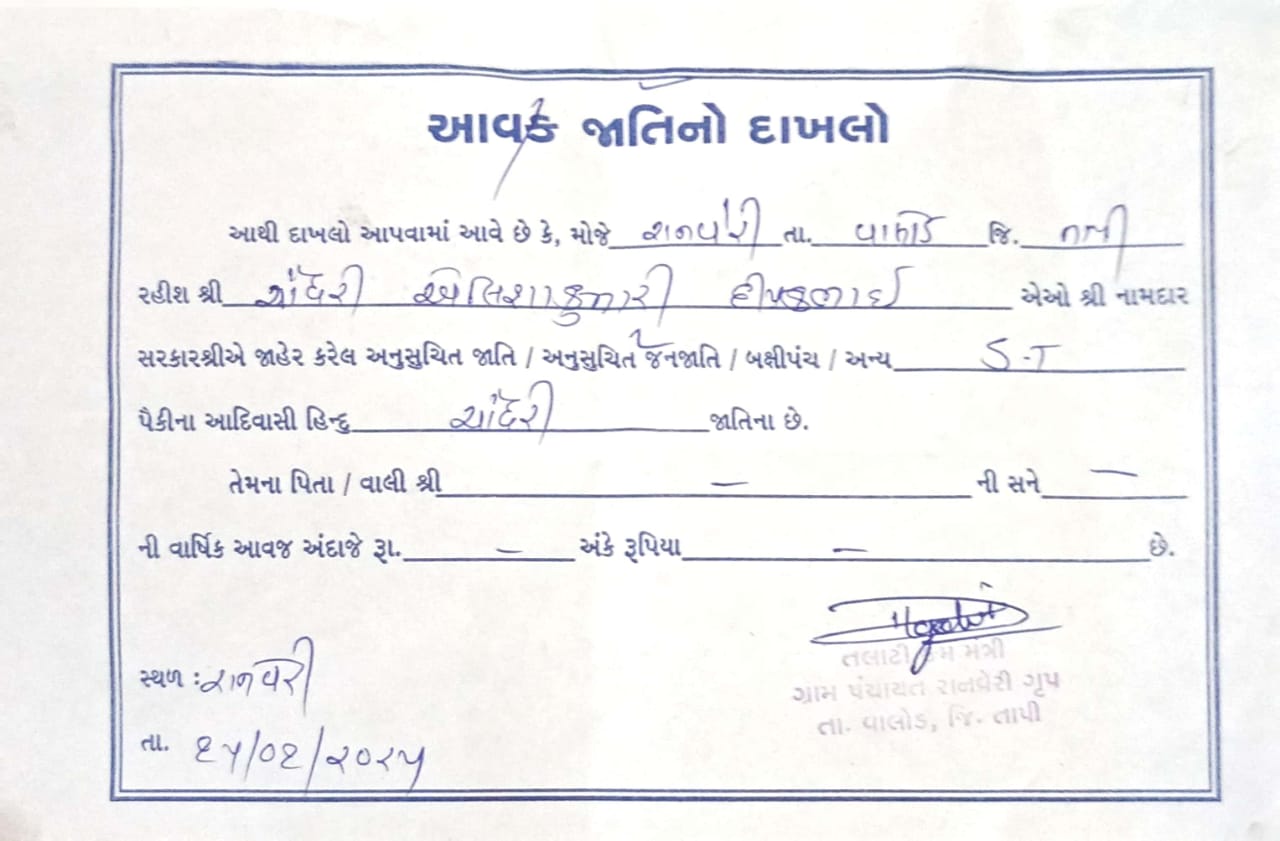 આવક જાતિનો દાખલો
આથી દાખલો આપવામાં આવે છે કે, મોજે રાનવેરી તા. વાલોડ જિ. તાપી
રહીશ શ્રી ચૌધરી એલિશાકુમારી દીપકભાઈ એઓ શ્રી નામદાર
સરકારશ્રીએ જાહેર કરેલ અનુસુચિત જાતિ / અનુસુચિત જનજાતિ / બક્ષીપંચ / અન્ય S-T
પૈકીના આદિવાસી હિન્દુ ચૌધરી જાતિના છે.
તેમના પિતા / વાલી શ્રી — ની સને —
ની વાર્ષિક આવજ અંદાજે રૂા. — અંકે રૂપિયા — છે.
તલાટી કમ મંત્રી
ગ્રામ પંચાયત રાનવેરી ગૃપ
તા. વાલોડ, જિ. તાપી
સ્થળ : રાનવેરી
તા.